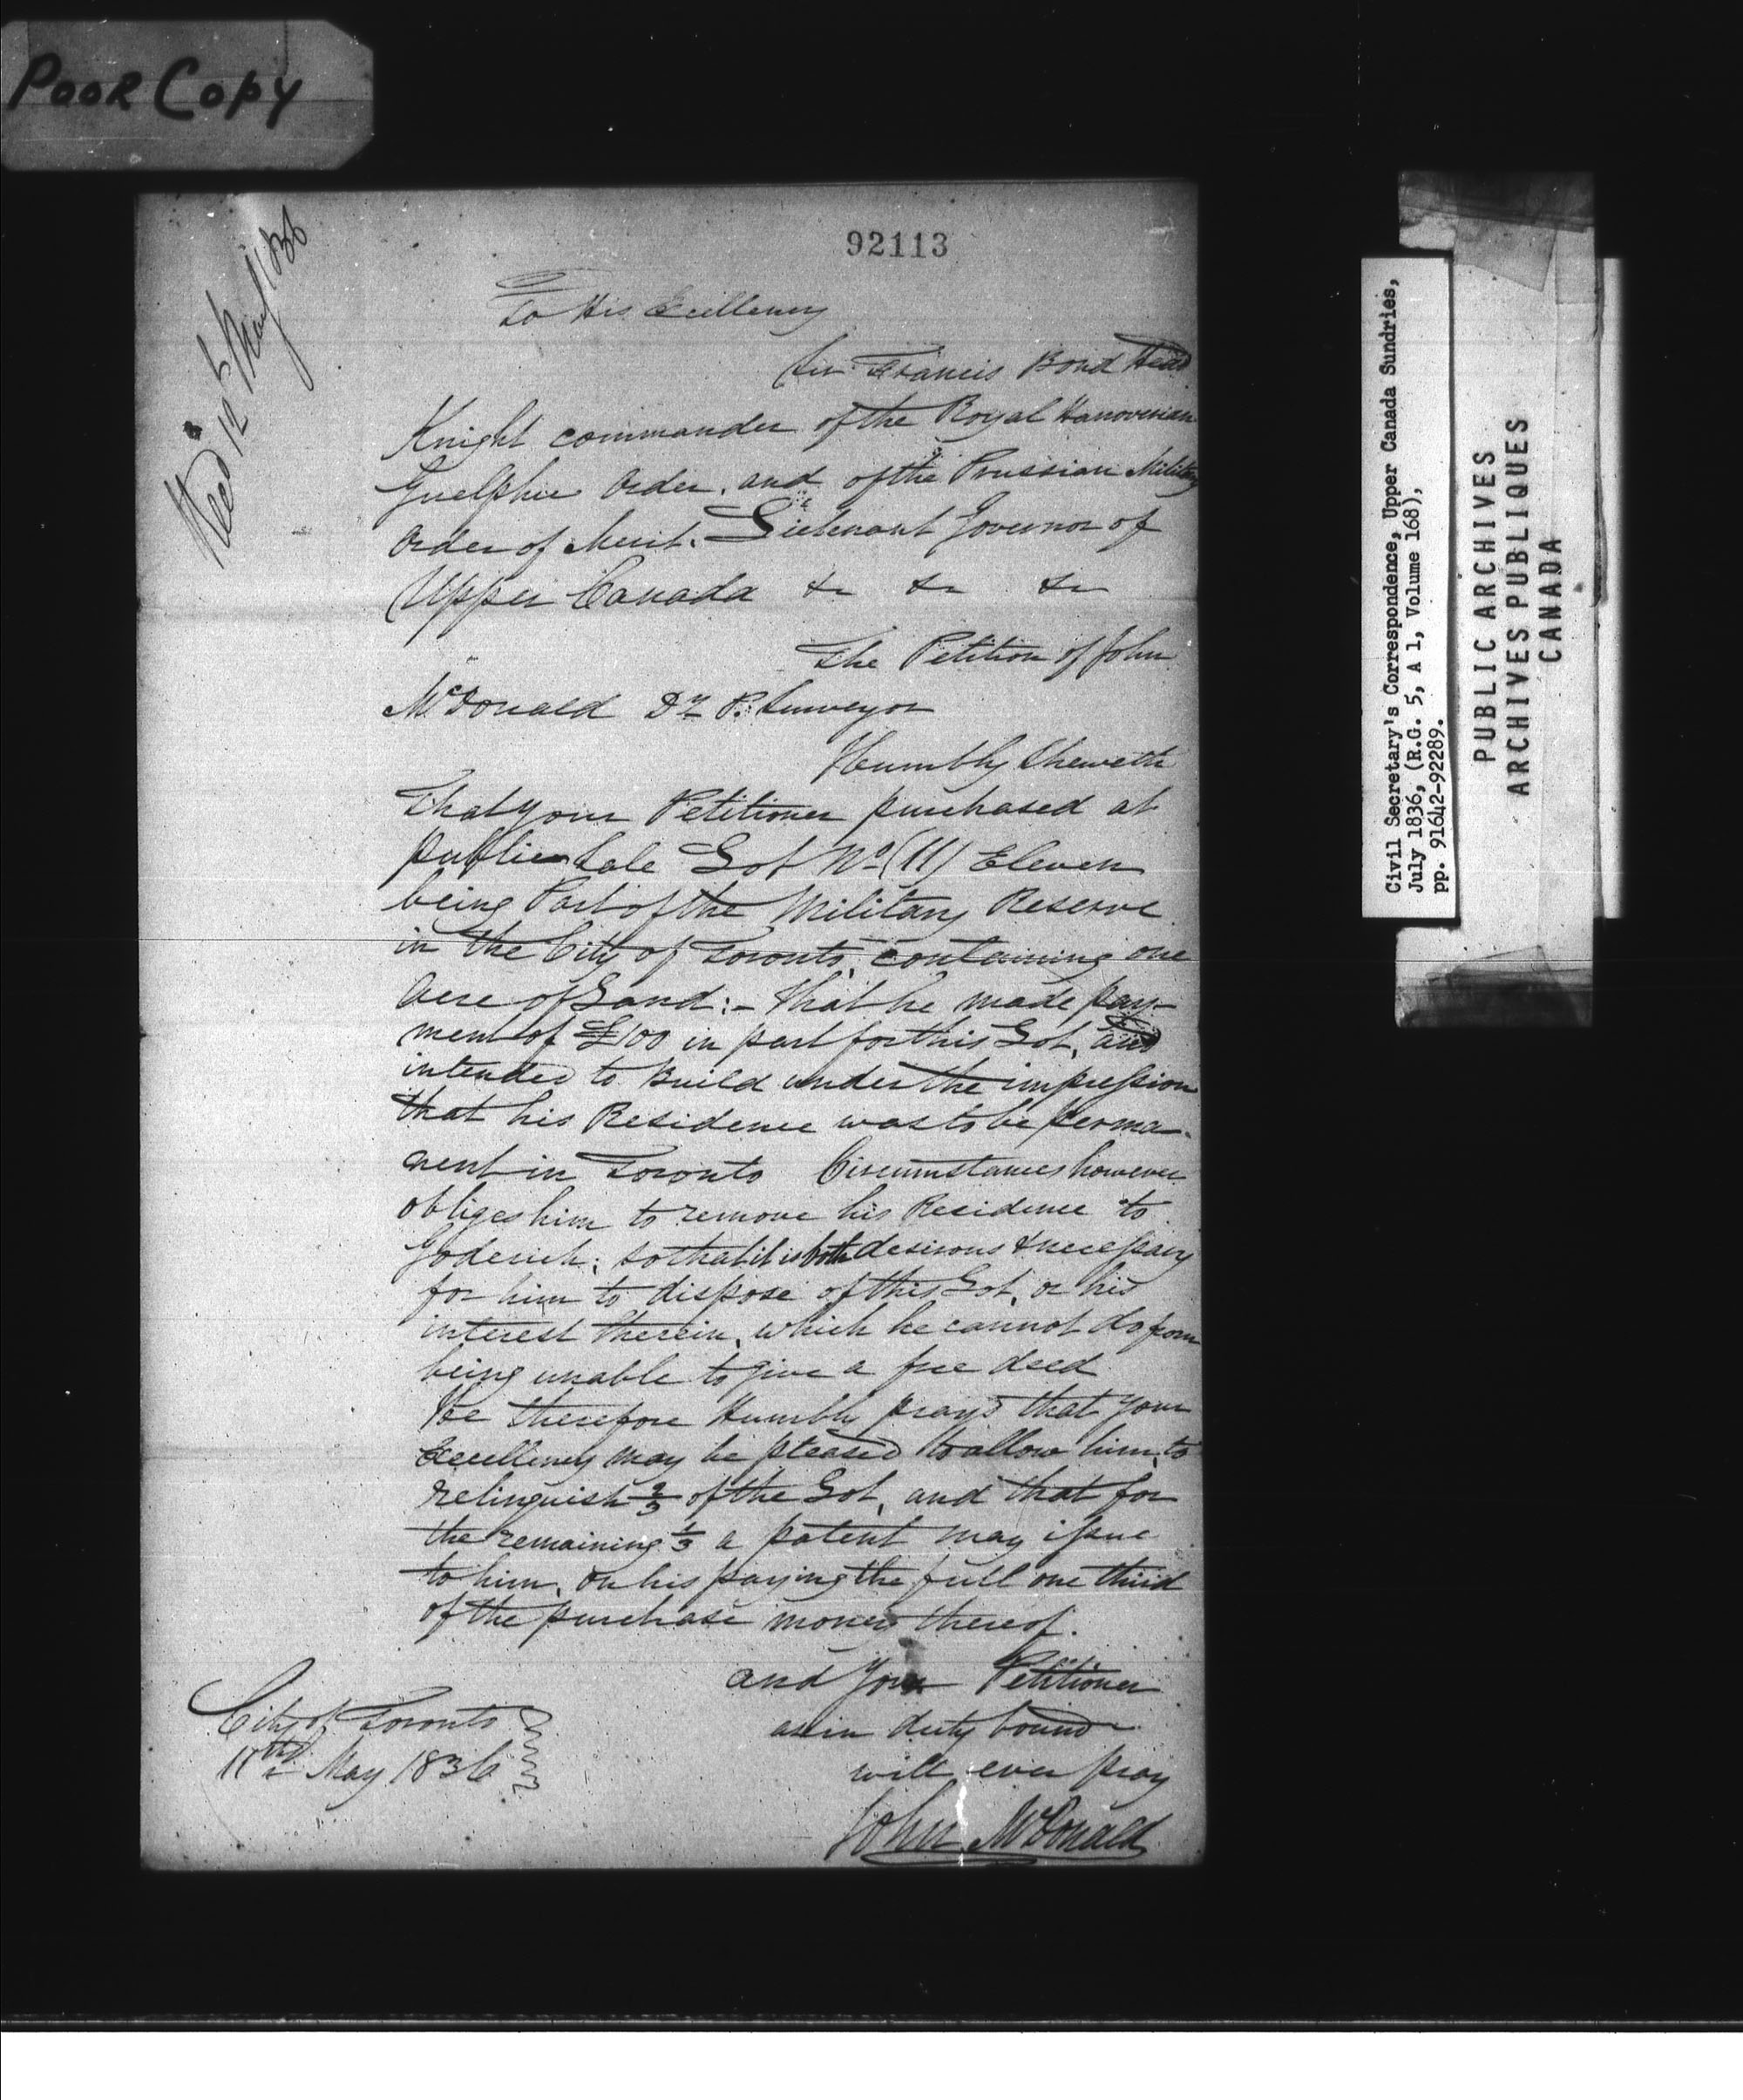 POOR COPY
92113
Recd 12th May 1836
To His Excellency
Sir Francis Bond Head
Knight commander of the Royal Hanoverian
Guelphic Order, and of the Prussian Military
Order of Merit. Lieutenant Governor of
Upper Canada &c &c &c
The Petition of John
McDonald Dy P. Surveyor
Humbly Sheweth
That your Petitioner purchased at
public Sale Lot No (11) Eleven
being Part of the Military Reserve
in the City of Toronto, containing one
Acre of Land:- that he made pay-
ment of £100 in part for this Lot, and
intended to Build under the impression
that his Residence was to be perma-
nent in Toronto Circumstances however
obliges him to remove his Residence to
Goderich; so that it is both desirous & necessary
for him to dispose of this Lot, or his
interest therein, which he cannot do from
being unable to give a free deed
He therefore Humbly prays that your
Excellency may be pleased to allow him, to
relinquish 2/3 of the Lot, and that for
the remaining 1/3 a patent may issue
to him, on his paying the full one third
of the purchase money thereof.
and your Petitioner
as in duty bound
will ever pray
John McDonald
City of Toronto
11th May 1836
Civil Secretary's Correspondence, Upper Canada Sundries,
July 1836, (R.G. 5, A 1, Volume 168),
pp. 91642-92289.
PUBLIC ARCHIVES
ARCHIVES PUBLIQUES
CANADA